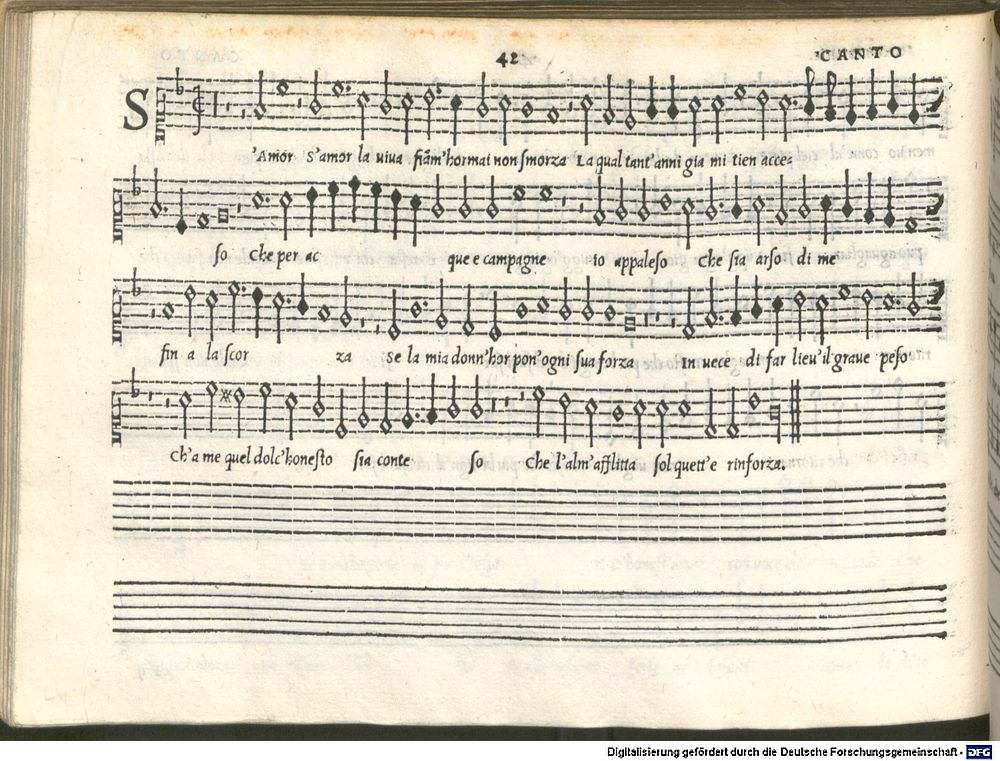 42
CANTO
S
'Amor S'amor la viua fiãm'hormai non smorza La qual tant'anni gia mi tien acce=
so Che per ac que e campagne io appaleso Che sia arso di me
fin a la scor za Se la mia donn'hor pon'ogni sua forza In uece di far lieu'il graue peso
Ch'a me quel dolc'honesto sia conte so Che l'alm'afflitta sol quett'e rinforza.
Digitalisierung gefördert durch die Deutsche Forschungsgemeinschaft - DFG